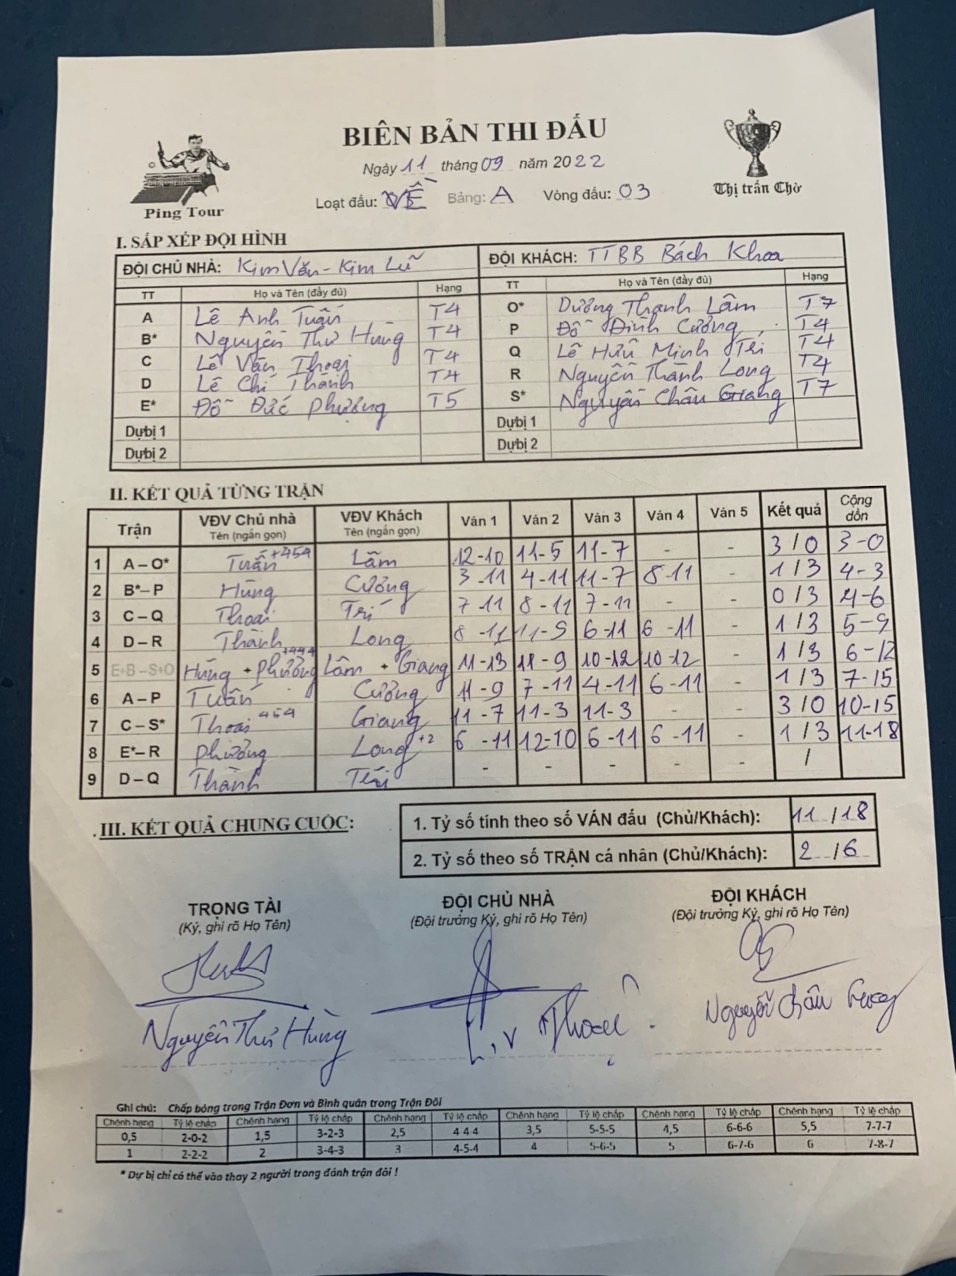 BIÊN BẢN THI ĐẤU
Ngày 11 tháng 09 năm 2022
Loạt đấu: VỀ Bảng: A Vòng đấu: 03
Ping Tour
Thị trấn Chờ
I. SẮP XẾP ĐỘI HÌNH
ĐỘI CHỦ NHÀ: Kim Văn - Kim Lũ
ĐỘI KHÁCH: TTBB Bách Khoa
TT Họ và Tên (đầy đủ) Hạng TT Họ và Tên (đầy đủ) Hạng
A Lê Anh Tuấn T4 O* Dương Thanh Lâm T7
B* Nguyễn Thư Hùng T4 P Đỗ Đình Cường T4
C Lê Văn Thoại T4 Q Lê Hữu Minh Trí T4
D Lê Chí Thành T4 R Nguyễn Thành Long T4
E* Đỗ Đức Phượng T5 S* Nguyễn Châu Giang T7
Dự bị 1 Dự bị 1
Dự bị 2 Dự bị 2
II. KẾT QUẢ TỪNG TRẬN
Trận VĐV Chủ nhà Tên (ngắn gọn) VĐV Khách Tên (ngắn gọn) Ván 1 Ván 2 Ván 3 Ván 4 Ván 5 Kết quả Cộng dồn
1 A – O* Tuấn +454 Lâm 12-10 11-5 11-7 - - 3/0 3-0
2 B* – P Hùng Cường 3-11 4-11 11-7 8-11 - 1/3 4-3
3 C – Q Thoại Trí 7-11 8-11 7-11 - - 0/3 4-6
4 D – R Thành Long 8-11 11-9 6-11 6-11 - 1/3 5-9
5 E+B – S+O Hùng + Phượng +444 Lâm + Giang 11-13 11-9 10-12 10-12 - 1/3 6-12
6 A – P Tuấn Cường 11-9 7-11 4-11 6-11 - 1/3 7-15
7 C – S* Thoại +454 Giang 11-7 11-3 11-3 - - 3/0 10-15
8 E* – R Phượng Long +2 6-11 12-10 6-11 6-11 - 1/3 11-18
9 D – Q Thành Trí - - - - - /
III. KẾT QUẢ CHUNG CUỘC:
1. Tỷ số tính theo số VÁN đấu (Chủ/Khách): 11/18
2. Tỷ số theo số TRẬN cá nhân (Chủ/Khách): 2/6
TRỌNG TÀI ĐỘI CHỦ NHÀ ĐỘI KHÁCH
(Ký, ghi rõ Họ Tên) (Đội trưởng Ký, ghi rõ Họ Tên) (Đội trưởng Ký, ghi rõ Họ Tên)
Nguyễn Thư Hùng L.V Thoại Nguyễn Châu Giang
Ghi chú: Chấp bóng trong Trận Đơn và Bình quân trong Trận Đôi
Chênh hạng Tỷ lệ chấp Chênh hạng Tỷ lệ chấp Chênh hạng Tỷ lệ chấp Chênh hạng Tỷ lệ chấp Chênh hạng Tỷ lệ chấp Chênh hạng Tỷ lệ chấp
0,5 2-0-2 1,5 3-2-3 2,5 4-4-4 3,5 5-5-5 4,5 6-6-6 5,5 7-7-7
1 2-2-2 2 3-4-3 3 4-5-4 4 5-6-5 5 6-7-6 6 7-8-7
* Dự bị chỉ có thể vào thay 2 người trong đánh trận đôi !